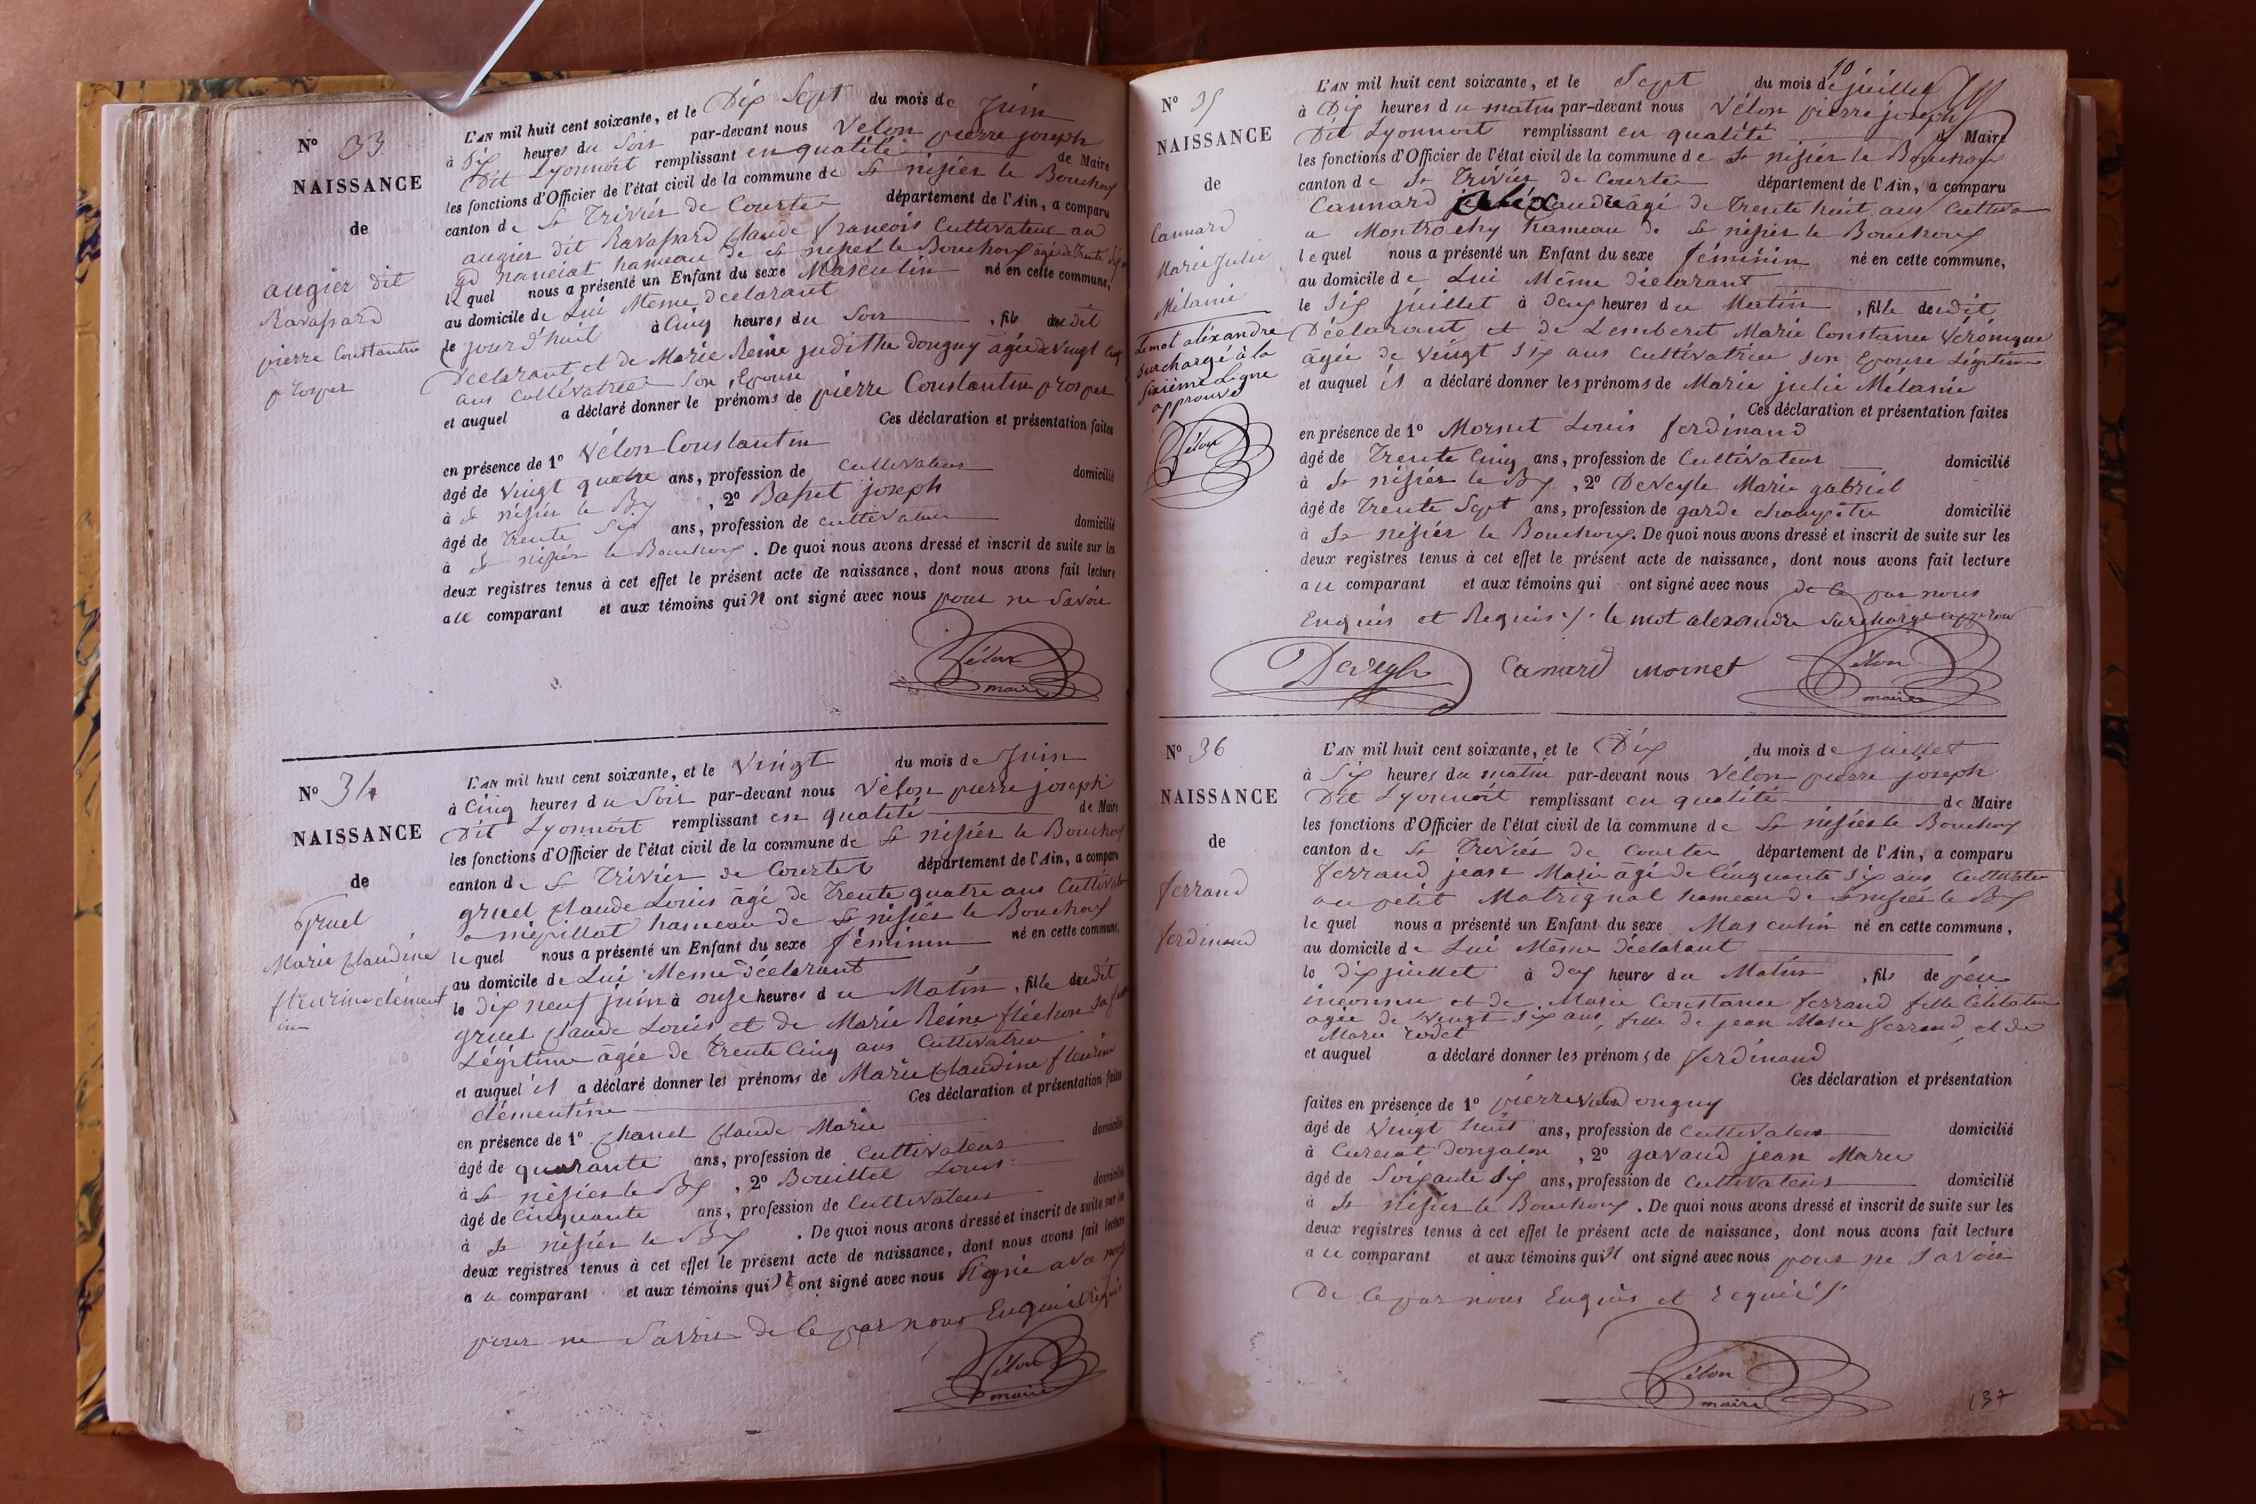 N° 33
NAISSANCE
de
augier dit
Ravassard
pierre Constantin
prosper
L'AN mil huit cent soixante, et le Dix Sept du mois de Juin
à Dix heures du Soir par-devant nous Vélon pierre joseph
Dit Lyonnoit remplissant en qualité de Maire
les fonctions d'Officier de l'état civil de la commune de St nisier le Bouchoux
canton de St Trivier de Courtes département de l'Ain, a comparu
augier dit Ravassard Claude francois Cultivateur au
gd nanciat hameau de St nisier le Bouchoux agé de Trente
le quel nous a présenté un Enfant du sexe Masculin né en cette commune,
au domicile de Lui Meme declarant
le jour d'huit à Cinq heures du Soir , fils du dit
Déclarant et de Marie Reine judithe Donguy agée de vingt Cinq
ans Cultivatrice Son Epouse
et auquel a déclaré donner le prénoms de pierre Constantin prosper
Ces déclaration et présentation faites
en présence de 1° Vélon Constantin
âgé de vingt quatre ans, profession de Cultivateur domicilié
à St nisier le Bx , 2° Basset joseph
âgé de Trente Six ans, profession de cultivateur domicilié
à St nisier le Bouchoux . De quoi nous avons dressé et inscrit de suite sur les
deux registres tenus à cet effet le présent acte de naissance, dont nous avons fait lecture
au comparant et aux témoins qui n ont signé avec nous pour ne Savoir
Vélon
maire
N° 34
NAISSANCE
de
gruel
Marie Claudine
fleurine clément
ine
L'AN mil huit cent soixante, et le Vingt du mois de Juin
à Cinq heures du Soir par-devant nous Vélon pierre joseph
Dit Lyonnoit remplissant en qualité de Maire
les fonctions d'Officier de l'état civil de la commune de St nisier le Bouchoux
canton de St Trivier de Courtes département de l'Ain, a comparu
gruel Claude Louis âgé de Trente quatre ans Cultivateur
a mépillat hameau de St nisier le Bouchoux
le quel nous a présenté un Enfant du sexe féminin né en cette commune,
au domicile de Lui Meme déclarant
le dix neuf juin à onze heures du Matin , fille du dit
gruel Claude Louis et de Marie Reine fléchon Sa
Légitime âgée de Trente Cinq ans Cultivatrice
et auquel il a déclaré donner les prénoms de Marie Claudine fleurine
clémentine Ces déclaration et présentation faites
en présence de 1° Chanel Claude Marie
âgé de quarante ans, profession de Cultivateur domicilié
à St nisier le Bx , 2° Bouillet Louis
âgé de Cinquante ans, profession de Cultivateur domicilié
à St nisier le Bx . De quoi nous avons dressé et inscrit de suite sur les
deux registres tenus à cet effet le présent acte de naissance, dont nous avons fait lecture
au comparant et aux témoins qui n ont signé avec nous
pour ne Savoir de Ce par nous Enquis
Vélon
maire
N° 35
NAISSANCE
de
Cannard
Marie Julie
Mélanie
Le mot aléxandre
Surchargé à la
Sixième Ligne
approuvé
Vélon
L'AN mil huit cent soixante, et le Sept du mois de juillet
à Dix heures du matin par-devant nous Vélon pierre joseph
Dit Lyonnoit remplissant en qualité de Maire
les fonctions d'Officier de l'état civil de la commune de St nisier le Bouchoux
canton de St Trivier de Courtes département de l'Ain, a comparu
Cannard aléxandre agé de Trente huit ans Cultiva
a Montrochy hameau de St nisier le Bouchoux
le quel nous a présenté un Enfant du sexe féminin né en cette commune,
au domicile de Lui Même déclarant
le Six juillet à deux heures du Matin , fille de dit
Déclarant et de Lemberet Marie Constance Véronique
agée de Vingt Six ans Cultivatrice Son Epouse Légitime
et auquel il a déclaré donner les prénoms de Marie julie Mélanie
Ces déclaration et présentation faites
en présence de 1° Mornet Louis ferdinand
âgé de Trente Cinq ans, profession de Cultivateur domicilié
à St nisier le Bx , 2° Deveyle Marie gabriel
âgé de Trente Sept ans, profession de garde champêtre domicilié
à St nisier le Bouchoux. De quoi nous avons dressé et inscrit de suite sur les
deux registres tenus à cet effet le présent acte de naissance, dont nous avons fait lecture
au comparant et aux témoins qui ont signé avec nous de Ce par nous
Enquis et Requis /. le mot alexandre Surchargé approuvé
Deveyle Canard mornet Vélon
maire
N° 36
NAISSANCE
de
ferrand
ferdinand
L'AN mil huit cent soixante, et le Dix du mois de juillet
à Six heures du matin par-devant nous Vélon pierre joseph
Dit Lyonnoit remplissant en qualité de Maire
les fonctions d'Officier de l'état civil de la commune de St nisier le Bouchoux
canton de St Trivier de Courtes département de l'Ain, a comparu
ferrand jean Marie âgé de Cinquante Six ans Cultivateur
au petit Matrignat hameau de St nisier le Bx
le quel nous a présenté un Enfant du sexe Masculin né en cette commune,
au domicile de Lui Même déclarant
le dix juillet à deux heures du Matin , fils de pére
inconnu et de Marie Constance ferrand fille Célibataire
agée de Vingt Six ans, fille de jean Marie ferrand et de
Marie rodet
et auquel a déclaré donner les prénoms de ferdinand
Ces déclaration et présentation
faites en présence de 1° pierre donguy
âgé de Vingt huit ans, profession de Cultivateur domicilié
à Curciat Dongalon , 2° gavand jean Marie
âgé de Soixante dix ans, profession de Cultivateur domicilié
à St nisier le Bouchoux . De quoi nous avons dressé et inscrit de suite sur les
deux registres tenus à cet effet le présent acte de naissance, dont nous avons fait lecture
au comparant et aux témoins qui n ont signé avec nous pour ne Savoir
De Ce par nous Enquis et requis /.
Vélon
maire
137